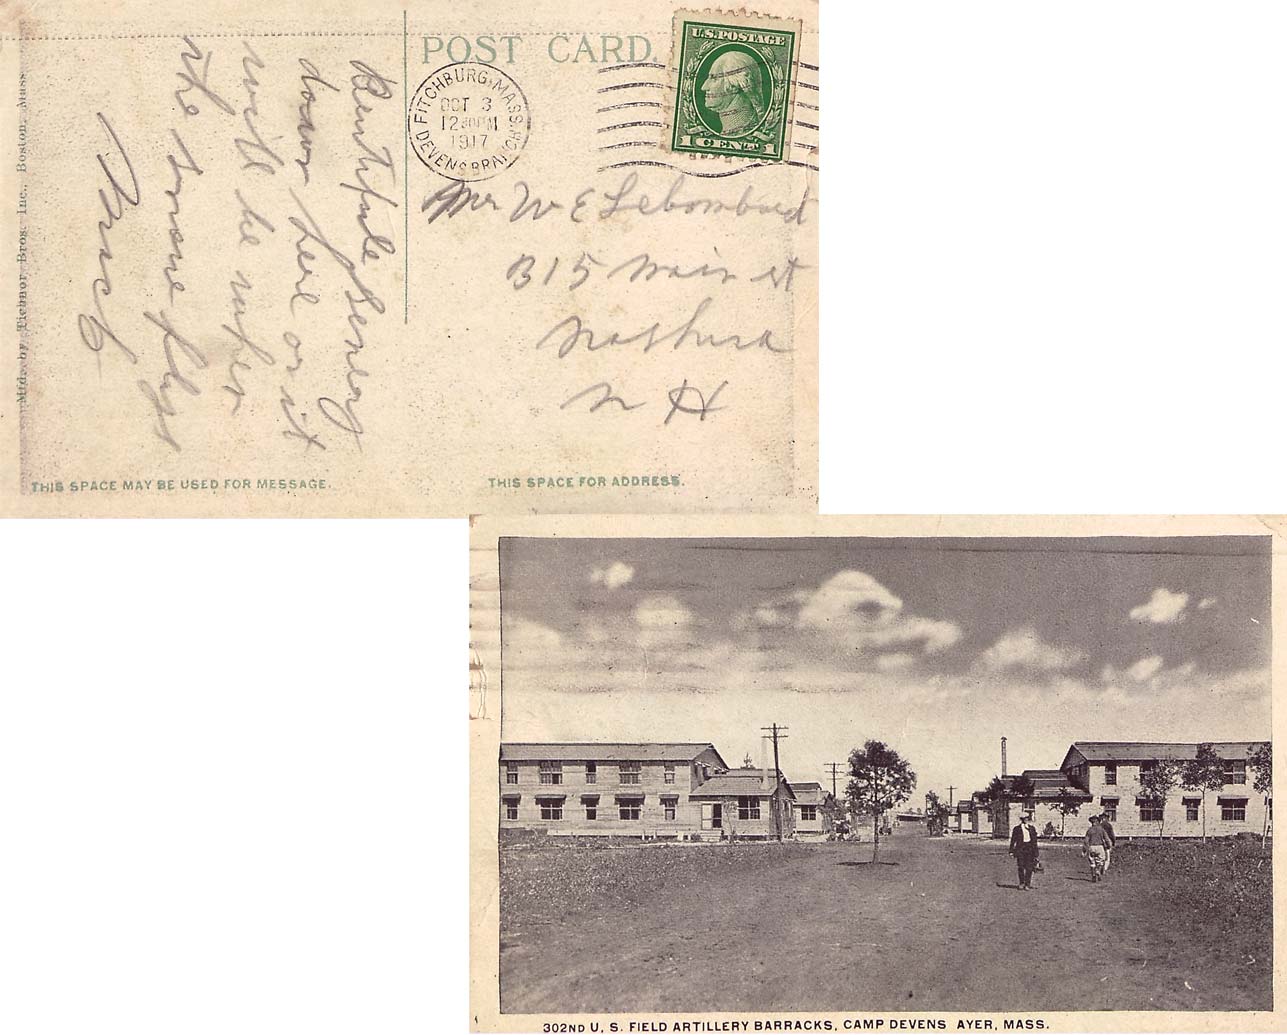 POST CARD.
FITCHBURG, MASS.
OCT 3
12 30 PM
1917
DEVENS BRANCH
U.S. POSTAGE
1 CENT 1
Mr W E Lebombard
315 Main st
Nashua
N H
Beutifule Senery
down here or it
will be when
the snow flys
THIS SPACE MAY BE USED FOR MESSAGE.
THIS SPACE FOR ADDRESS.
Mfd. by Tichnor Bros. Inc., Boston, Mass.
302ND U. S. FIELD ARTILLERY BARRACKS, CAMP DEVENS AYER, MASS.